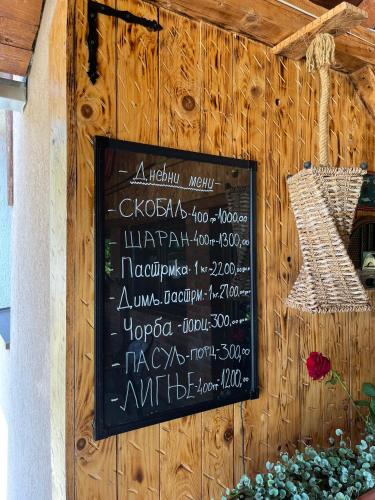 - Дневни мени -
- СКОБАЉ - 400 гр 1000,00
- ШАРАН - 400 гр - 1300,00
- Пастрмка - 1 кг - 2200,00
- Димљ. пастрм. - 1 кг. 2700,00
- Чорба - порц - 300,00
- ПАСУЉ - порц - 300,00
- ЛИГЊЕ - 400 гр 1200,00